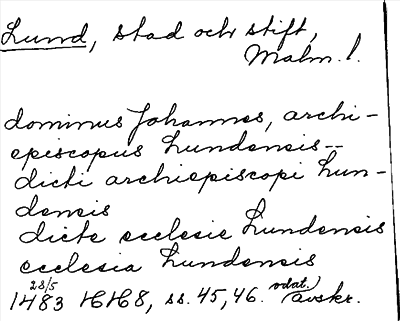 Lund, stad och stift,
Malm. l.
dominus Johannes, archi-
episcopus Lundensis --
dicti archiepiscopi Lun-
densis
dicte ecclesie Lundensis
ecclesia Lundensis
23/5 odat.)
1483 HH8, ss. 45, 46. avskr.